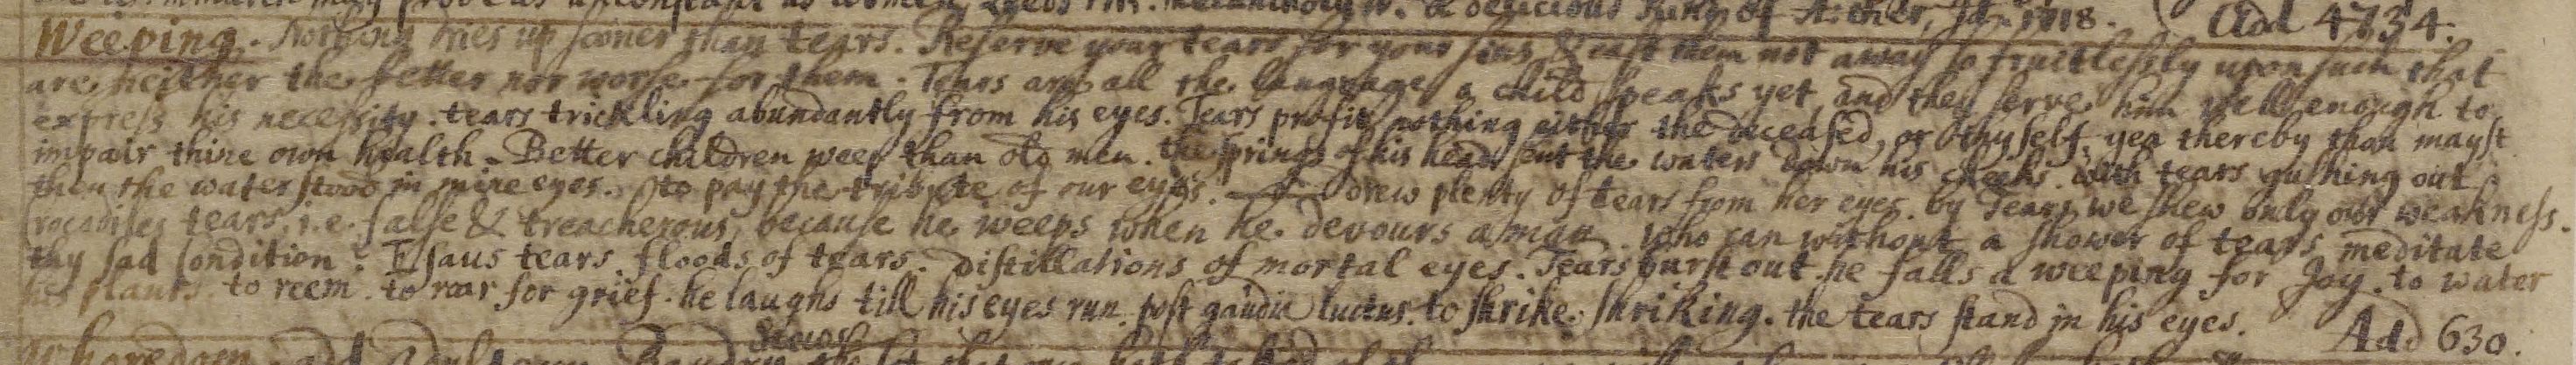 Add 4734.
Weeping. Nothing dries up sooner than tears. Reserve your tears for your sins, & cast them not away so fruitlessly upon such that
are neither the better nor worse for them. Tears are all the language a child speaks yet, and they serve him well enough to
express his necessity. tears trickling abundantly from his eyes. Tears profit nothing either the deceased, or thyself, yea thereby thou mayst
impair thine own health. Better children weep than old men. the springs of his head sent the waters down his cheeks. with tears gushing out
then the water stood in mine eyes. to pay the tribute of our eyes. drew plenty of tears from her eyes. by Tears we shew only our weakness.
Crocodiles tears, i.e. false & treacherous, because he weeps when he devours a man. who can without a shower of tears meditate
thy sad condition. Esaus tears. floods of tears. Distillations of mortal eyes. Tears burst out. he falls a weeping for Joy. to water
his plants. to reem. to roar for grief. he laughs till his eyes run. post gaudia luctus. to shrike. shriking. the tears stand in his eyes. Add 630.
Stews